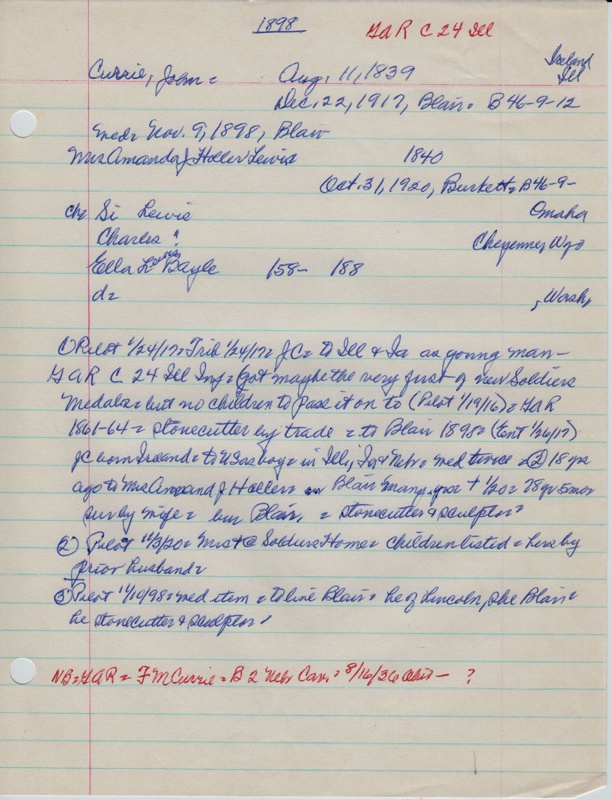 1898 GAR C 24 Ill
Ireland
Ill
Currie, John = Aug. 11, 1839
Dec. 22, 1917, Blair = B 46-9-12
med = Nov. 9, 1898, Blair
Mrs Amanda J Holler Lewis 1840
Oct. 31, 1920, Burkett = B46-9-
ch = Si Lewis Omaha
Charles " Cheyenne, Wyo
Ella Lewis Bayle 158- 188
d= , Wash,
① Pilot 1/24/17 = Trib 1/24/17 = JC = to Ill & Ia as young man -
GAR C 24 Ill Inf = Got maybe the very first of new Soldiers
Medals = but no children to pass it on to (Pilot 1/19/16) = GAR
1861-64 = stonecutter by trade = to Blair 1898 = (Ent 1/26/17)
JC born Ireand = to US as boy = in Ill, Ia & Nebr = med twice = ② 18 yrs
ago to Mrs Amand J Holler = Blair many yrs + 1/20 = 78 yr 5 mo
surv by wife = bur Blair, = stonecutter & sculptor =
② Pilot 11/3/20 = Mrs + @ Soldiers Home = children listed = hers by
prior husband =
③ Pilot 11/10/98 = med item = to live Blair = he of Lincoln, she Blair =
he stonecutter & sculptor =
NB = GAR = F M Currie = B 2 Nebr Cav = 8/16/36 Obit - ?